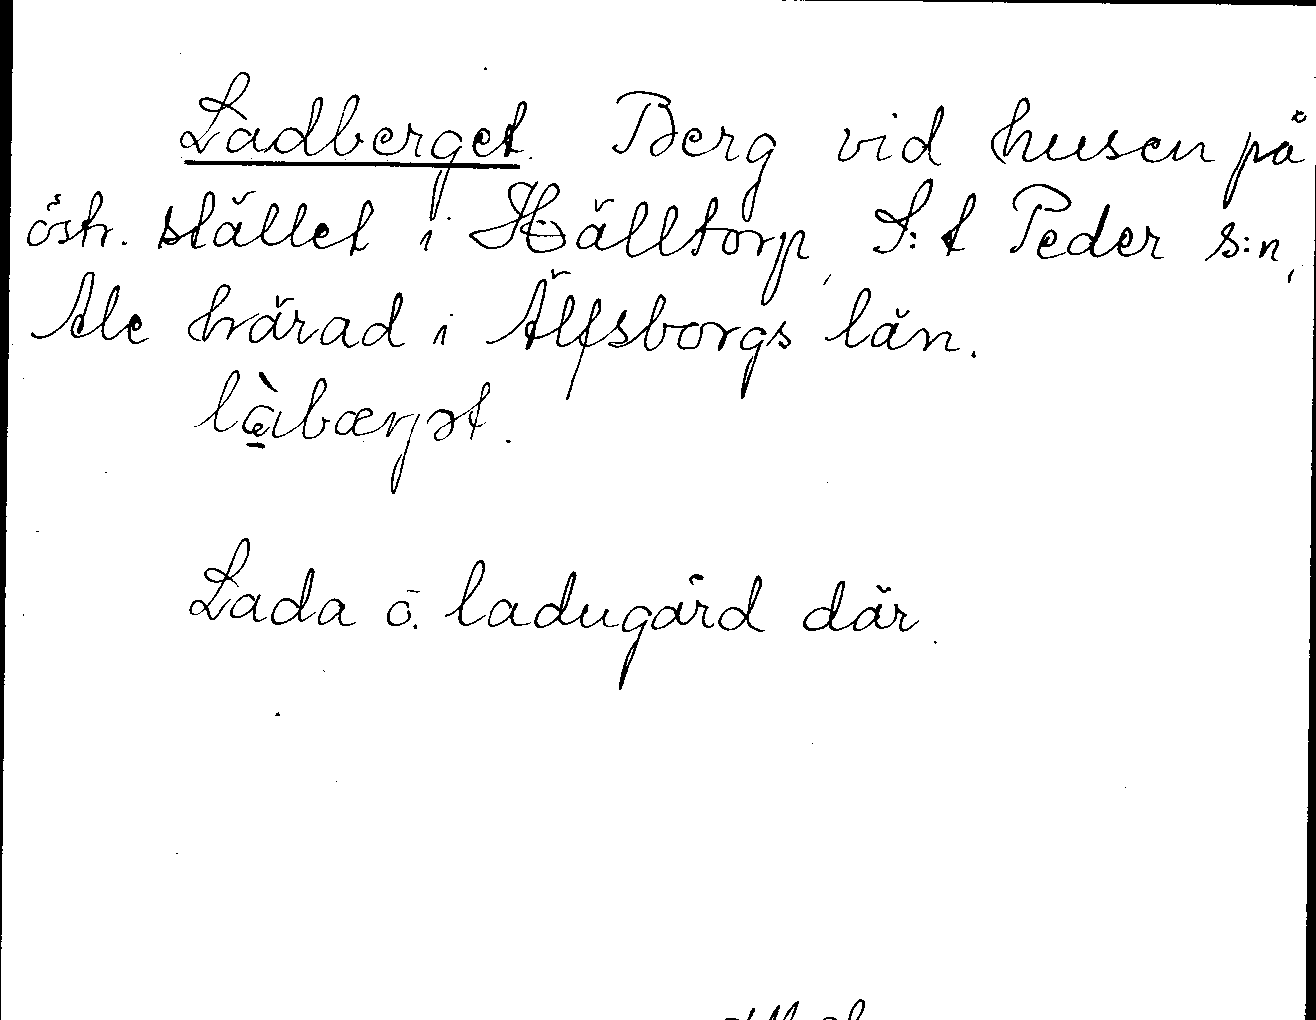 Ladberget. Berg vid husen på
östr. stället i Hälltorp, S:t Peder s:n,
Ale härad i Älfsborgs län.
Lada o. ladugård där.